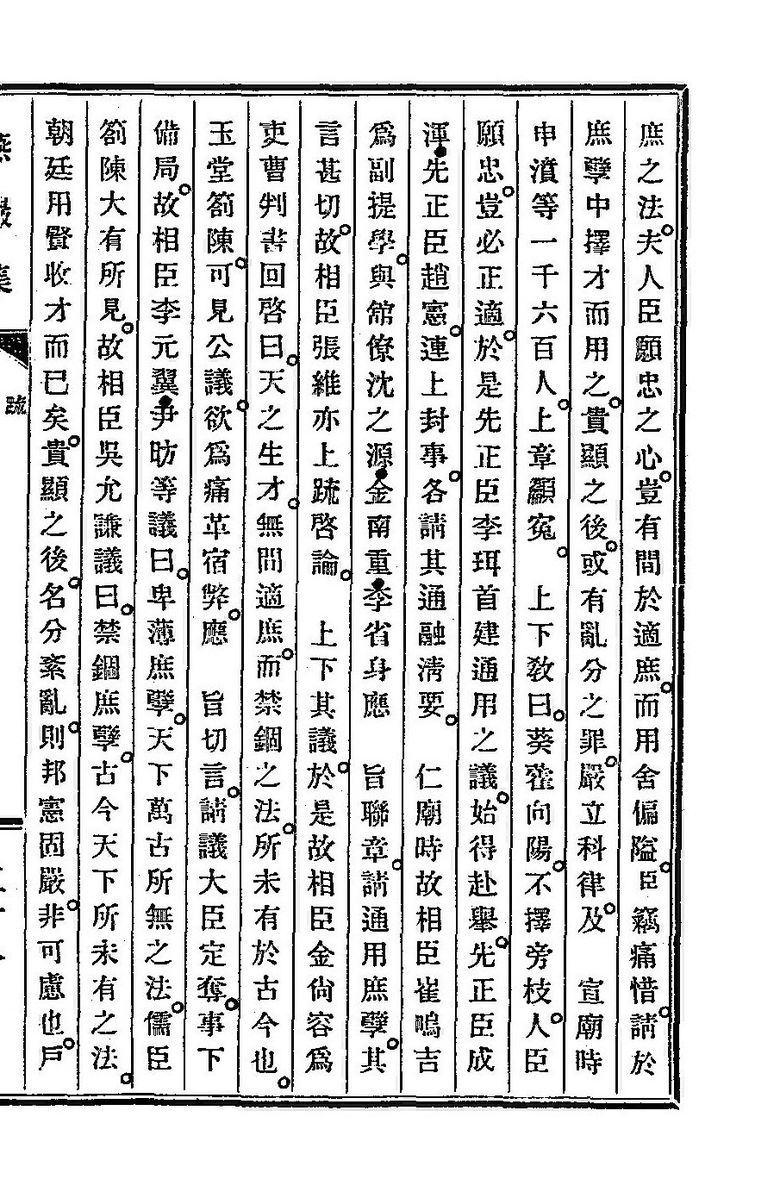 庶之法。夫人臣願忠之心。豈有間於適庶。而用舍偏隘。臣竊痛惜。請於
庶孼中擇才而用之。貴顯之後。或有亂分之罪。嚴立科律。及　宣廟時
申濆等一千六百人。上章顲寃。　上下敎曰。葵藿向陽。不擇旁枝。人臣
願忠。豈必正適。於是先正臣李珥首建通用之議。始得赴擧。先正臣成
渾先正臣趙憲。連上封事。各請其通融淸要。　仁廟時故相臣崔鳴吉
爲副提學。與館僚沈之源金南重李省身應　旨聯章。請通用庶孼。其
言甚切。故相臣張維亦上疏啓論。　上下其議。於是故相臣金尙容爲
吏曹判書回啓曰。天之生才。無間適庶。而禁錮之法。所未有於古今也。
玉堂箚陳。可見公議。欲爲痛革宿弊。應　旨切言。請議大臣定奪。事下
備局。故相臣李元翼尹昉等議曰。卑薄庶孼。天下萬古所無之法。儒臣
箚陳大有所見。故相臣吳允謙議曰。禁錮庶孼。古今天下所未有之法。
朝廷用賢收才而已矣。貴顯之後。名分紊亂。則邦憲固嚴。非可慮也。戶
集
疏